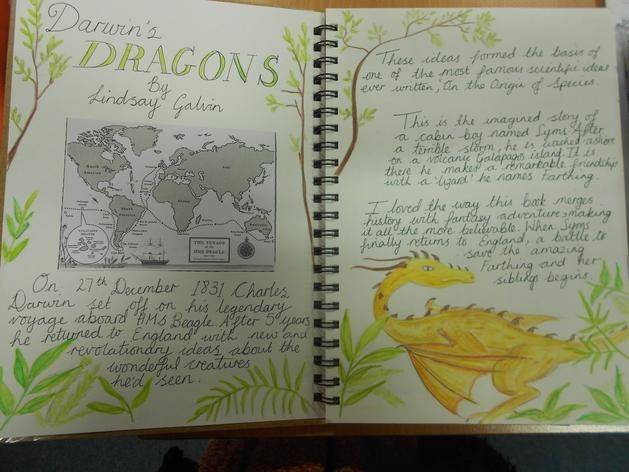 Darwin's
DRAGONS
By
Lindsay Galvin
North America
South America
Africa
Asia
Australia
THE VOYAGE
OF THE
HMS BEAGLE
On 27th December 1831 Charles
Darwin set off on his legendary
voyage aboard HMS Beagle. After 5 years
he returned to England with new and
revolutionary ideas about the
wonderful creatures
he'd seen.
These ideas formed the basis of
one of the most famous scientific ideas
ever written, 'On the Origin of Species.
This is the imagined story of
a cabin boy named Syms. After
a terrible storm, he is washed ashore
on a volcanic Galapagos island. It is
there he makes a remarkable friendship
with a 'lizard' he names Farthing.
I loved the way this book merges
history with fantasy adventure, making
it all the more believable. When Syms
finally returns to England, a battle to
save the amazing
Farthing and her
siblings begins.